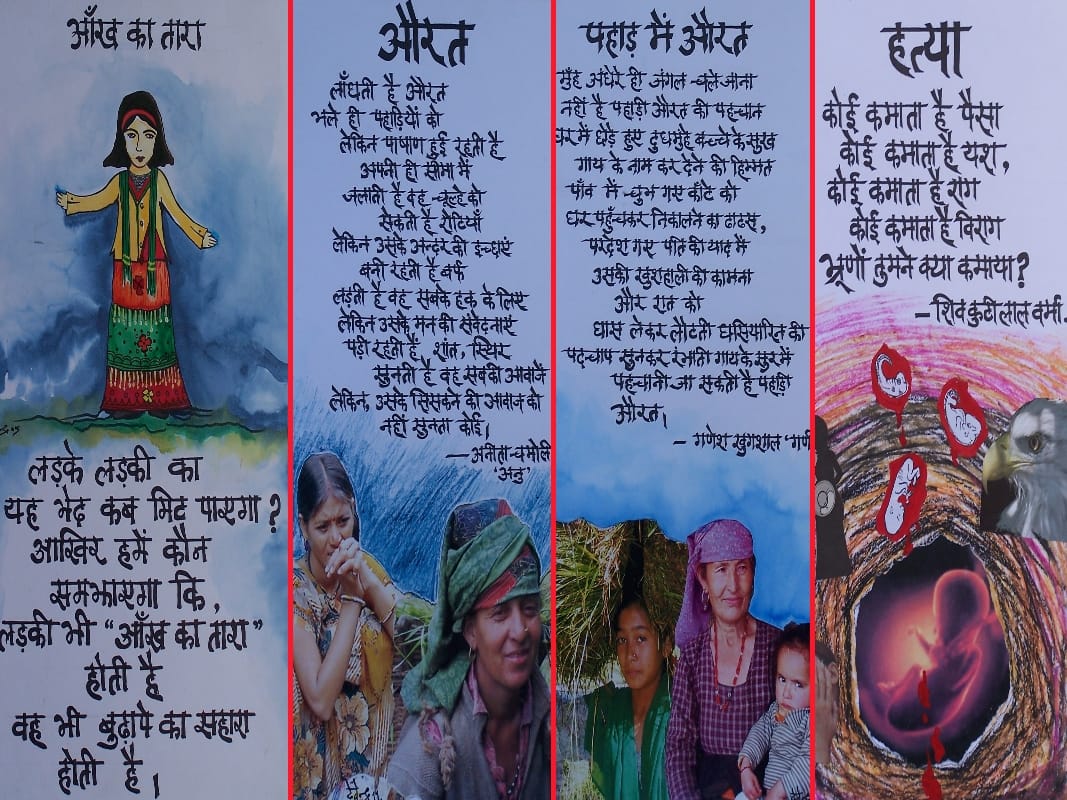 आँख का तारा
लड़के लड़की का
यह भेद कब मिट पाएगा ?
आखिर हमें कौन
समझाएगा कि,
लड़की भी “आँख का तारा”
होती है
वह भी बुढ़ापे का सहारा
होती है ।
औरत
लाँघती है औरत
भले ही पहाड़ियों को
लेकिन पाषाण हुई रहती है
अपनी ही सीमा में
जलाती है वह चूल्हे को
सेकती है रोटियाँ
लेकिन उसके अन्दर की इच्छाएं
बनी रहती है बर्फ
लड़ती है वह सबके हक के लिए
लेकिन उसके मन की संवेदनाएं
पड़ी रहती हैं, शांत, स्थिर
सुनती है वह सबकी आवाजें
लेकिन, उसके सिसकने की आवाज को
नहीं सुनता कोई।
—अनीता चमोली
'अनु'
पहाड़ में औरत
मुँह अंधेरे ही जंगल चले जाना
नहीं है पहाड़ी औरत की पहचान
घर में छोड़े हुए दुधमुँहे बच्चे के सुख
गाय के नाम कर देने की हिम्मत
पाँव में चुभ गए काँटे को
घर पहुँचकर निकालने का ढाढस,
परदेश गए पति की याद में
उसकी खुशहाली की कामना
और रात को
घास लेकर लौटती घसियारिन की
पदचाप सुनकर रंभाती गाय के सुर में
पहचानी जा सकती है पहाड़ी
औरत।
— गणेश खुगशाल 'गणी
हत्या
कोई कमाता है पैसा
कोई कमाता है यश,
कोई कमाता है राग
कोई कमाता है विराग
भ्रूणों तुमने क्या कमाया?
—शिव कुटी लाल वर्मा.